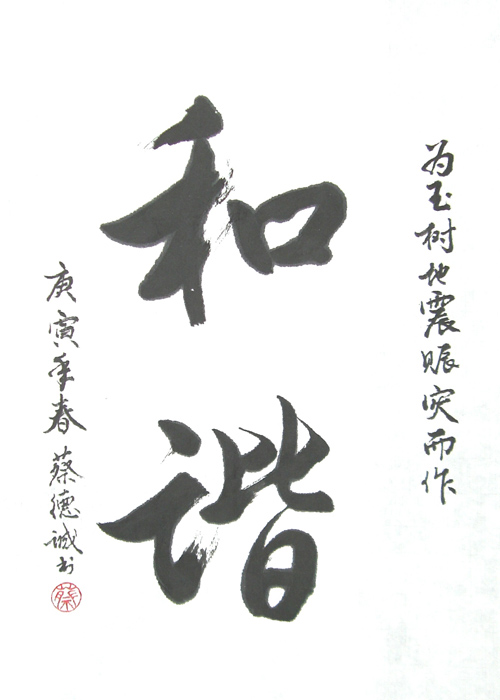 为玉树地震赈灾而作
和谐
庚寅年春 蔡德诚书
蔡